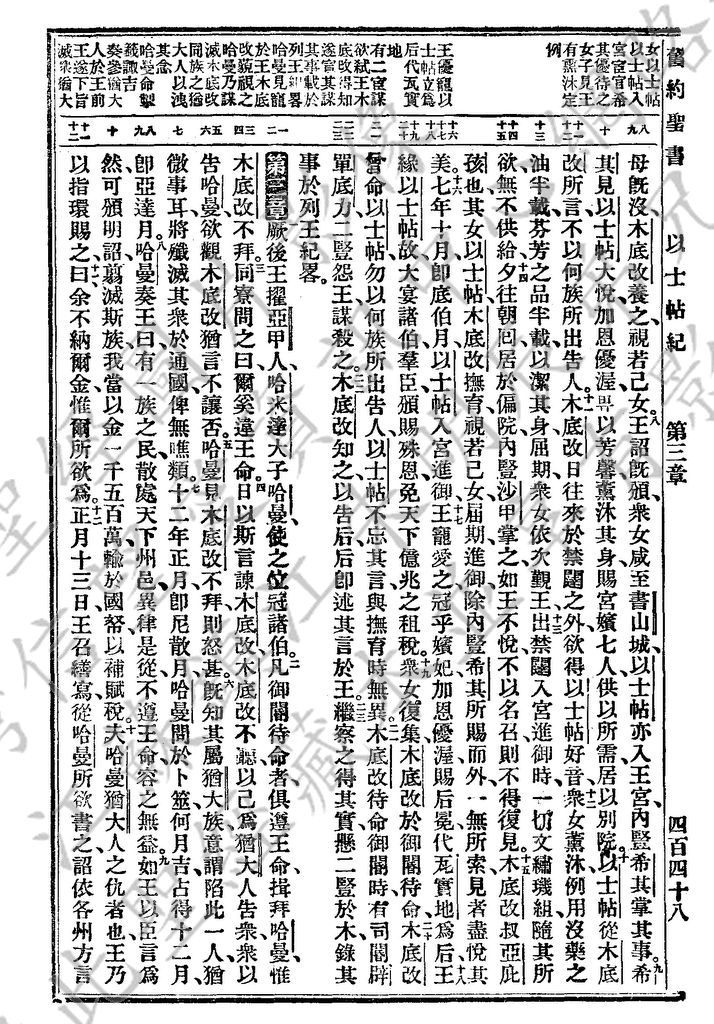 舊約聖書 以士帖紀 第三章 四百四十八
女以士帖
以士帖入
宮宦官希
其優待之
女子見王
有熏沐定
例
王優寵以
士帖立爲
后代瓦實
地
有二宦謀
欲弒王木
底改得知
遂宦其謀
其事載於
列王紀畧
哈曼見寵
於王木底
改藐視之
哈曼乃謀
滅木底改
同族之猶
大人以洩
其忿
哈曼命掣
籤諏吉
奏參猶大
人於王前
王遂下旨
滅衆猶大
八
九
十
十一
十二
十三
十四
十五
十六
十七
十八
十九
二十
二一
二二
二三
一
二
三
四
五
六
七
八
九
十
十一
十二
母旣沒木底改養之視若己女八王詔旣頒衆女咸至書山城以士帖亦入王宮內豎希其掌其事九希
其見以士帖大悅加恩優渥畀以芳馨薰沐其身賜宮嬪七人供以所需居以別院十以士帖從木底
改所言不以何族所出告人十一木底改日往來於禁闥之外欲得以士帖好音十二衆女薰沐例用沒藥之
油半載芬芳之品半載以潔其身屆期衆女依次覲王十三出禁闥入宮進御時一切文繡璣組隨其所
欲無不供給十四夕往朝囘居於偏院內豎沙甲掌之如王不悅不以名召則不得復見十五木底改叔亞庇
孩也其女以士帖木底改撫育視若己女屆期進御除內豎希其所賜而外一無所索見者盡悅其
美十六七年十月卽底伯月以士帖入宮進御十七王寵愛之冠乎嬪妃加恩優渥賜后冕代瓦實地爲后十八王
緣以士帖故大宴諸伯羣臣頒賜殊恩免天下億兆之租稅十九衆女復集木底改於御闈待命二十木底改
曾命以士帖勿以何族所出告人以士帖不忘其言與撫育時無異二一木底改待命御闈時有司閽辟
單底力二豎怨王謀殺之二二木底改知之以告后后卽述其言於王二三繼察之得其實懸二豎於木錄其
事於列王紀畧
第三章厥後王擢亞甲人哈米達大子哈曼使之位冠諸伯二凡御闈待命者俱遵王命揖拜哈曼惟
木底改不拜三同寮問之曰爾奚違王命四日以斯言諫木底改木底改不聽以己爲猶大人告衆衆以
告哈曼欲觀木底改猶言不讓否五哈曼見木底改不拜則怒甚六旣知其屬猶大族意謂陷此一人猶
微事耳將殲滅其衆於通國俾無噍類七十二年正月卽尼散月哈曼問於卜筮何月吉占得十二月
卽亞達月八哈曼奏王曰有一族之民散處天下州邑異律是從不遵王命容之無益九如王以臣言爲
然可頒明詔翦滅斯族我當以金一千五百萬輸於國帑以補賦稅十夫哈曼猶大人之仇者也王乃
以指環賜之十一曰余不納爾金惟爾所欲爲十二正月十三日王召繕寫從哈曼所欲書之詔依各州方言